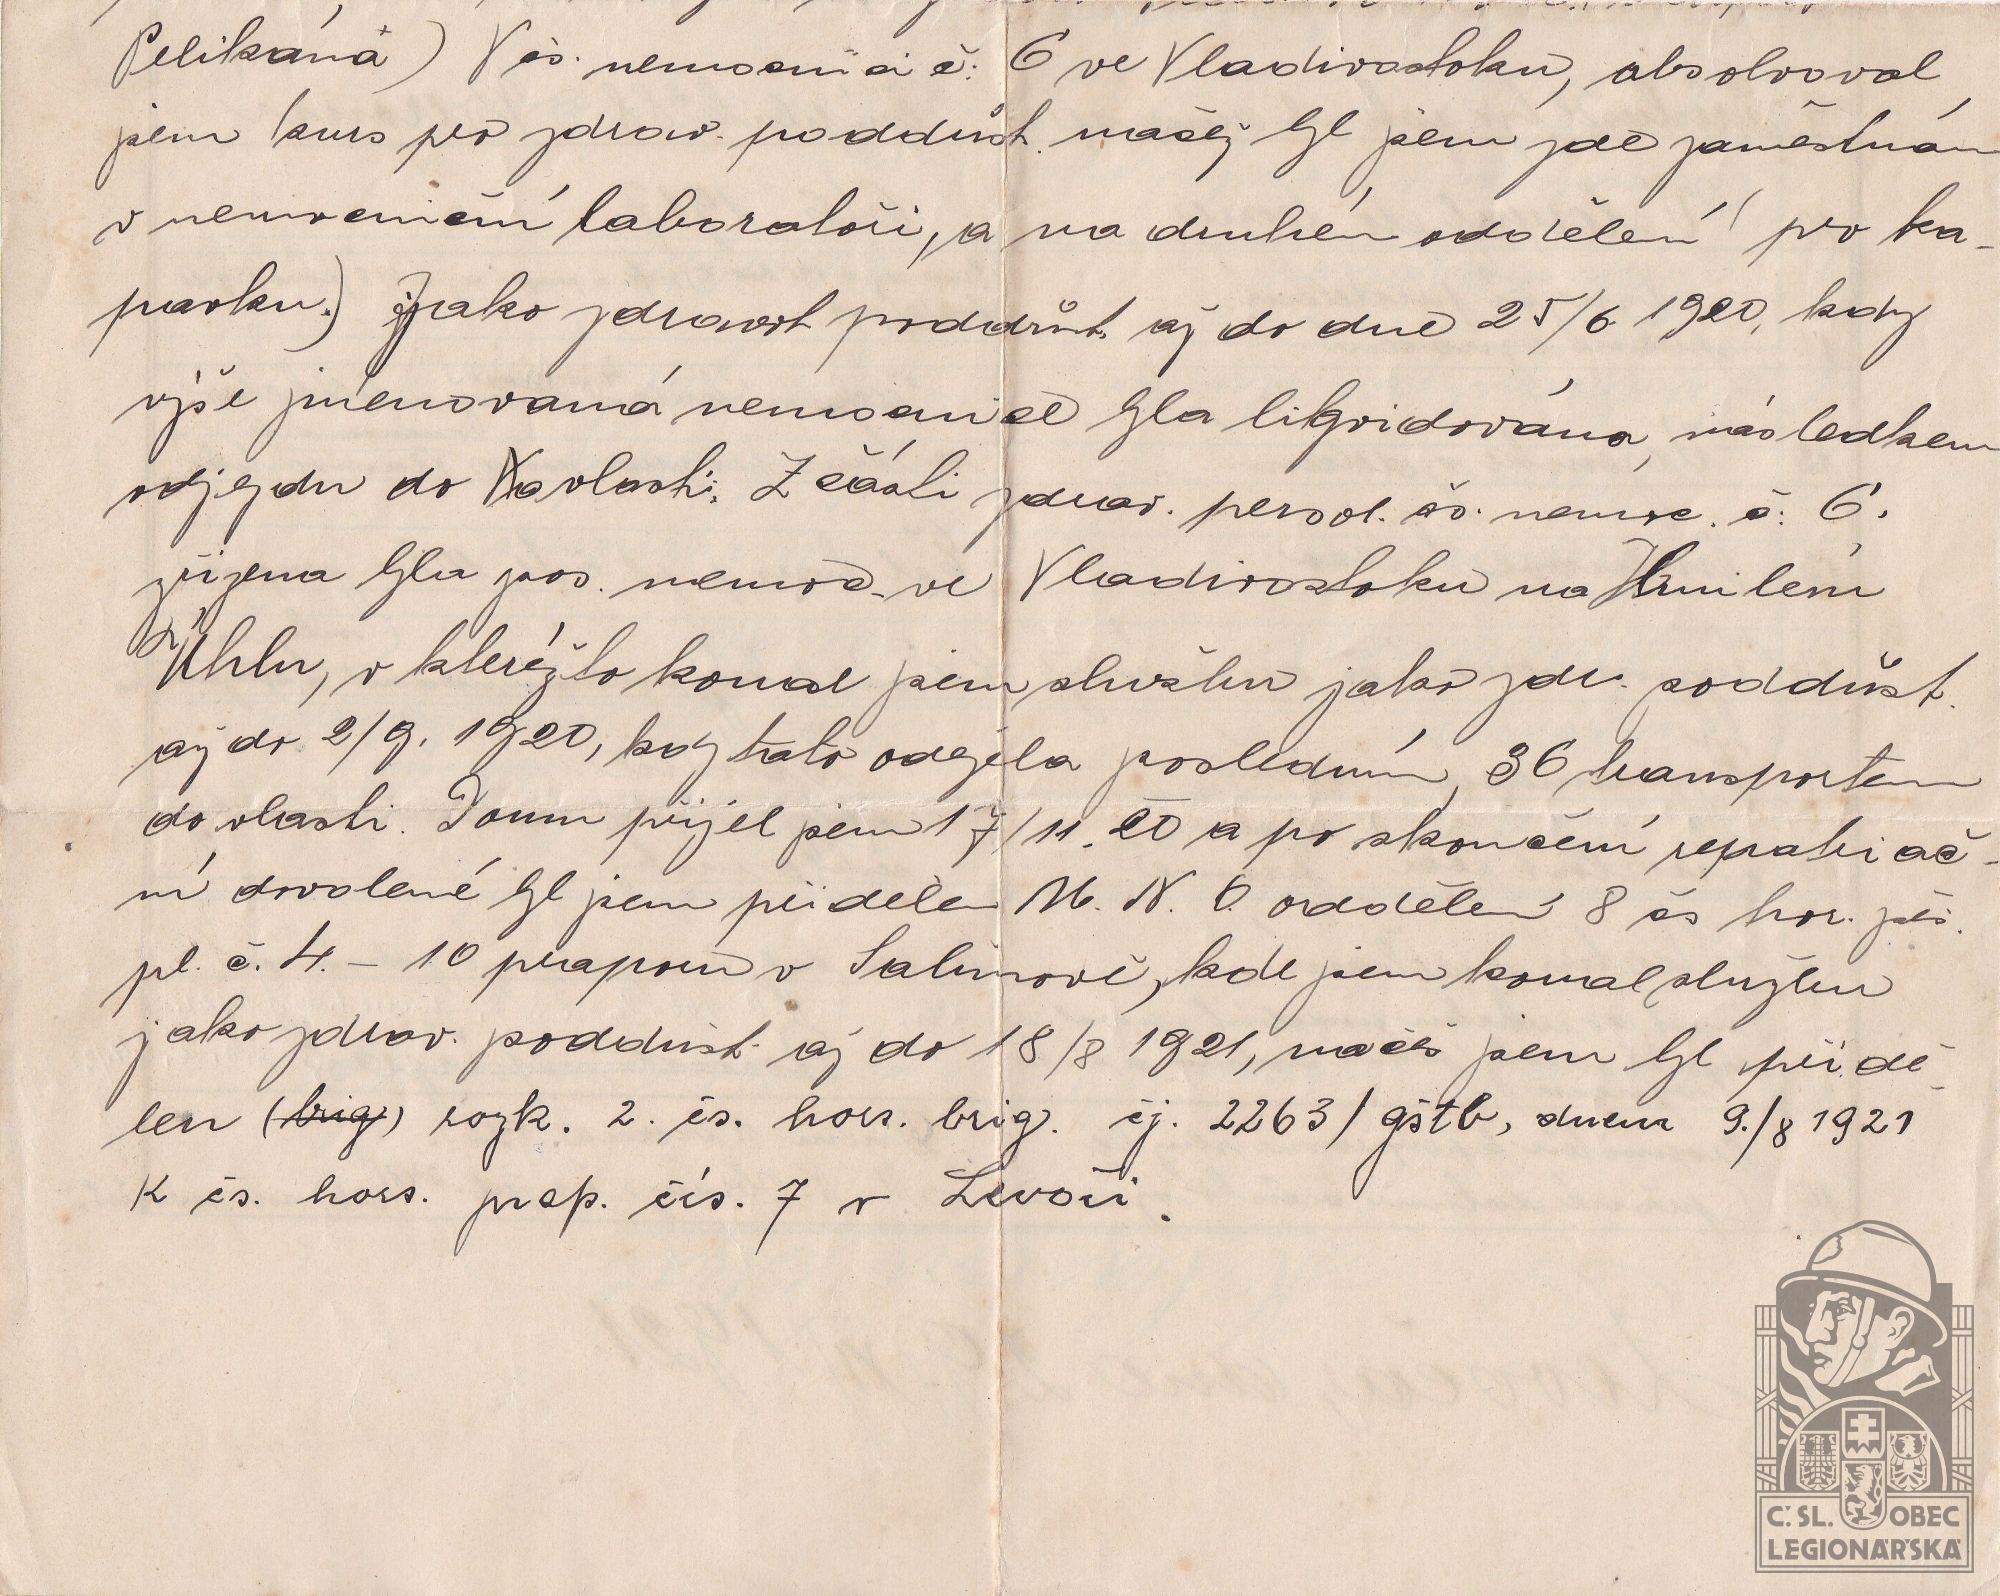 Pelikána) V čs. nemocnici č: 6 ve Vladivostoku, absolvoval
jsem kurs pro zdrav. poddůst. načež byl jsem zde zaměstnán
v nemocniční laboratoři, a na druhém oddělení (pro ka-
pavku.) jako zdravot poddůst. až do dne 25/6 1920, kdy
výše jmenovaná nemocnice byla likvidována, následkem
odjezdu do vlasti. Z části zdrav. persol. čs. nemoc. č: 6.
zřízena byla pos. nemoc. ve Vladivostoku na Hnilém
Úhlu, v kteréžto konal jsem službu jako zdr. poddůst.
až do 2/9. 1920, kdy tato odejela posledním, 36 transportem
do vlasti. Domu přijel jsem 17/11. 20 a po skončení repatriač-
ní dovolené byl jsem přidělen M. N. O. oddělení 8 čs hor. pěš.
pl. č. 4. – 10 praporu v Sabinově, kde jsem konal službu
jako zdrav. poddůst. až do 18/8 1921, načeš jsem byl přidě-
len (brig) rozk. 2. čs. hors. brig. čj. 2263/gštb, dnem 9./8 1921
K čs. hors. prap. čís. 7 v Levoči.
Č.SL. OBEC
LEGIONÁŘSKÁ